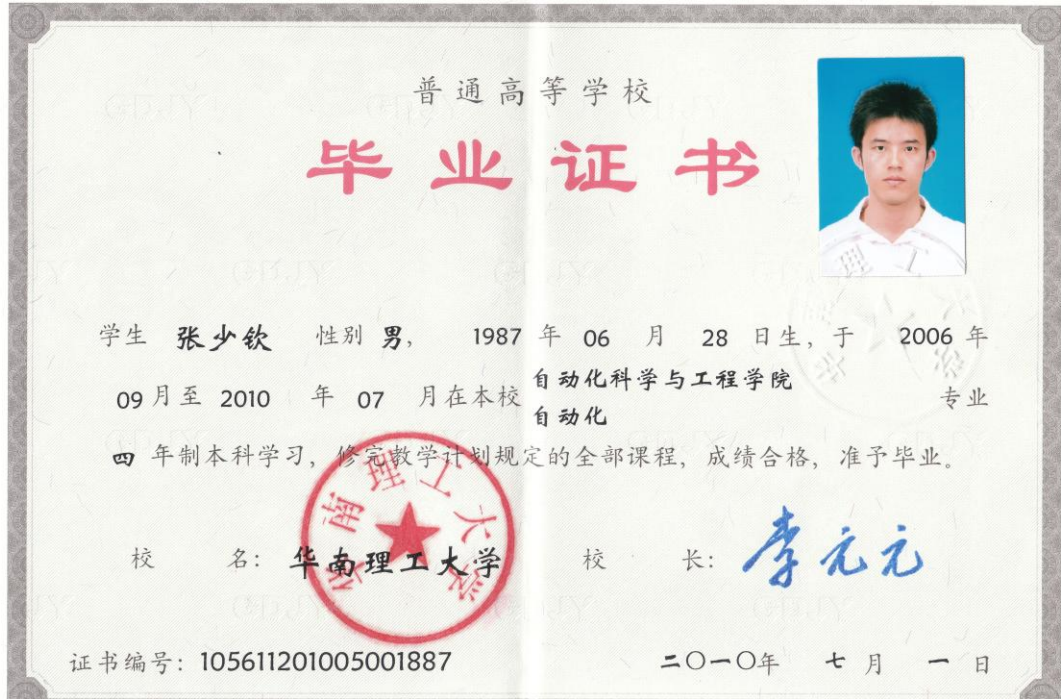 普通高等学校
毕业证书
学生 张少钦 性别 男, 1987 年 06 月 28 日生, 于 2006 年
09 月至 2010 年 07 月在本校 自动化科学与工程学院
自动化 专业
四 年制本科学习, 修完教学计划规定的全部课程, 成绩合格, 准予毕业。
校 名: 华南理工大学 校 长: 李元元
华南理工大学
证书编号: 105611201005001887 二〇一〇年 七 月 一 日